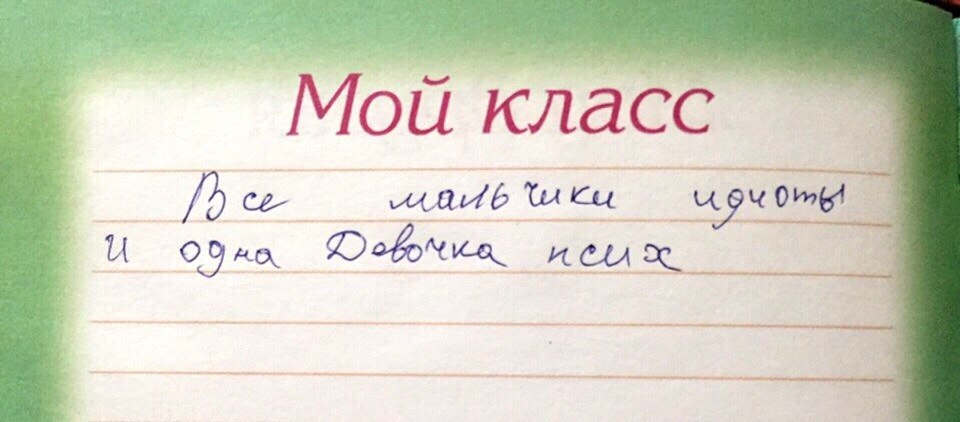 Мой класс
Все мальчики идиоты
и одна Девочка псих